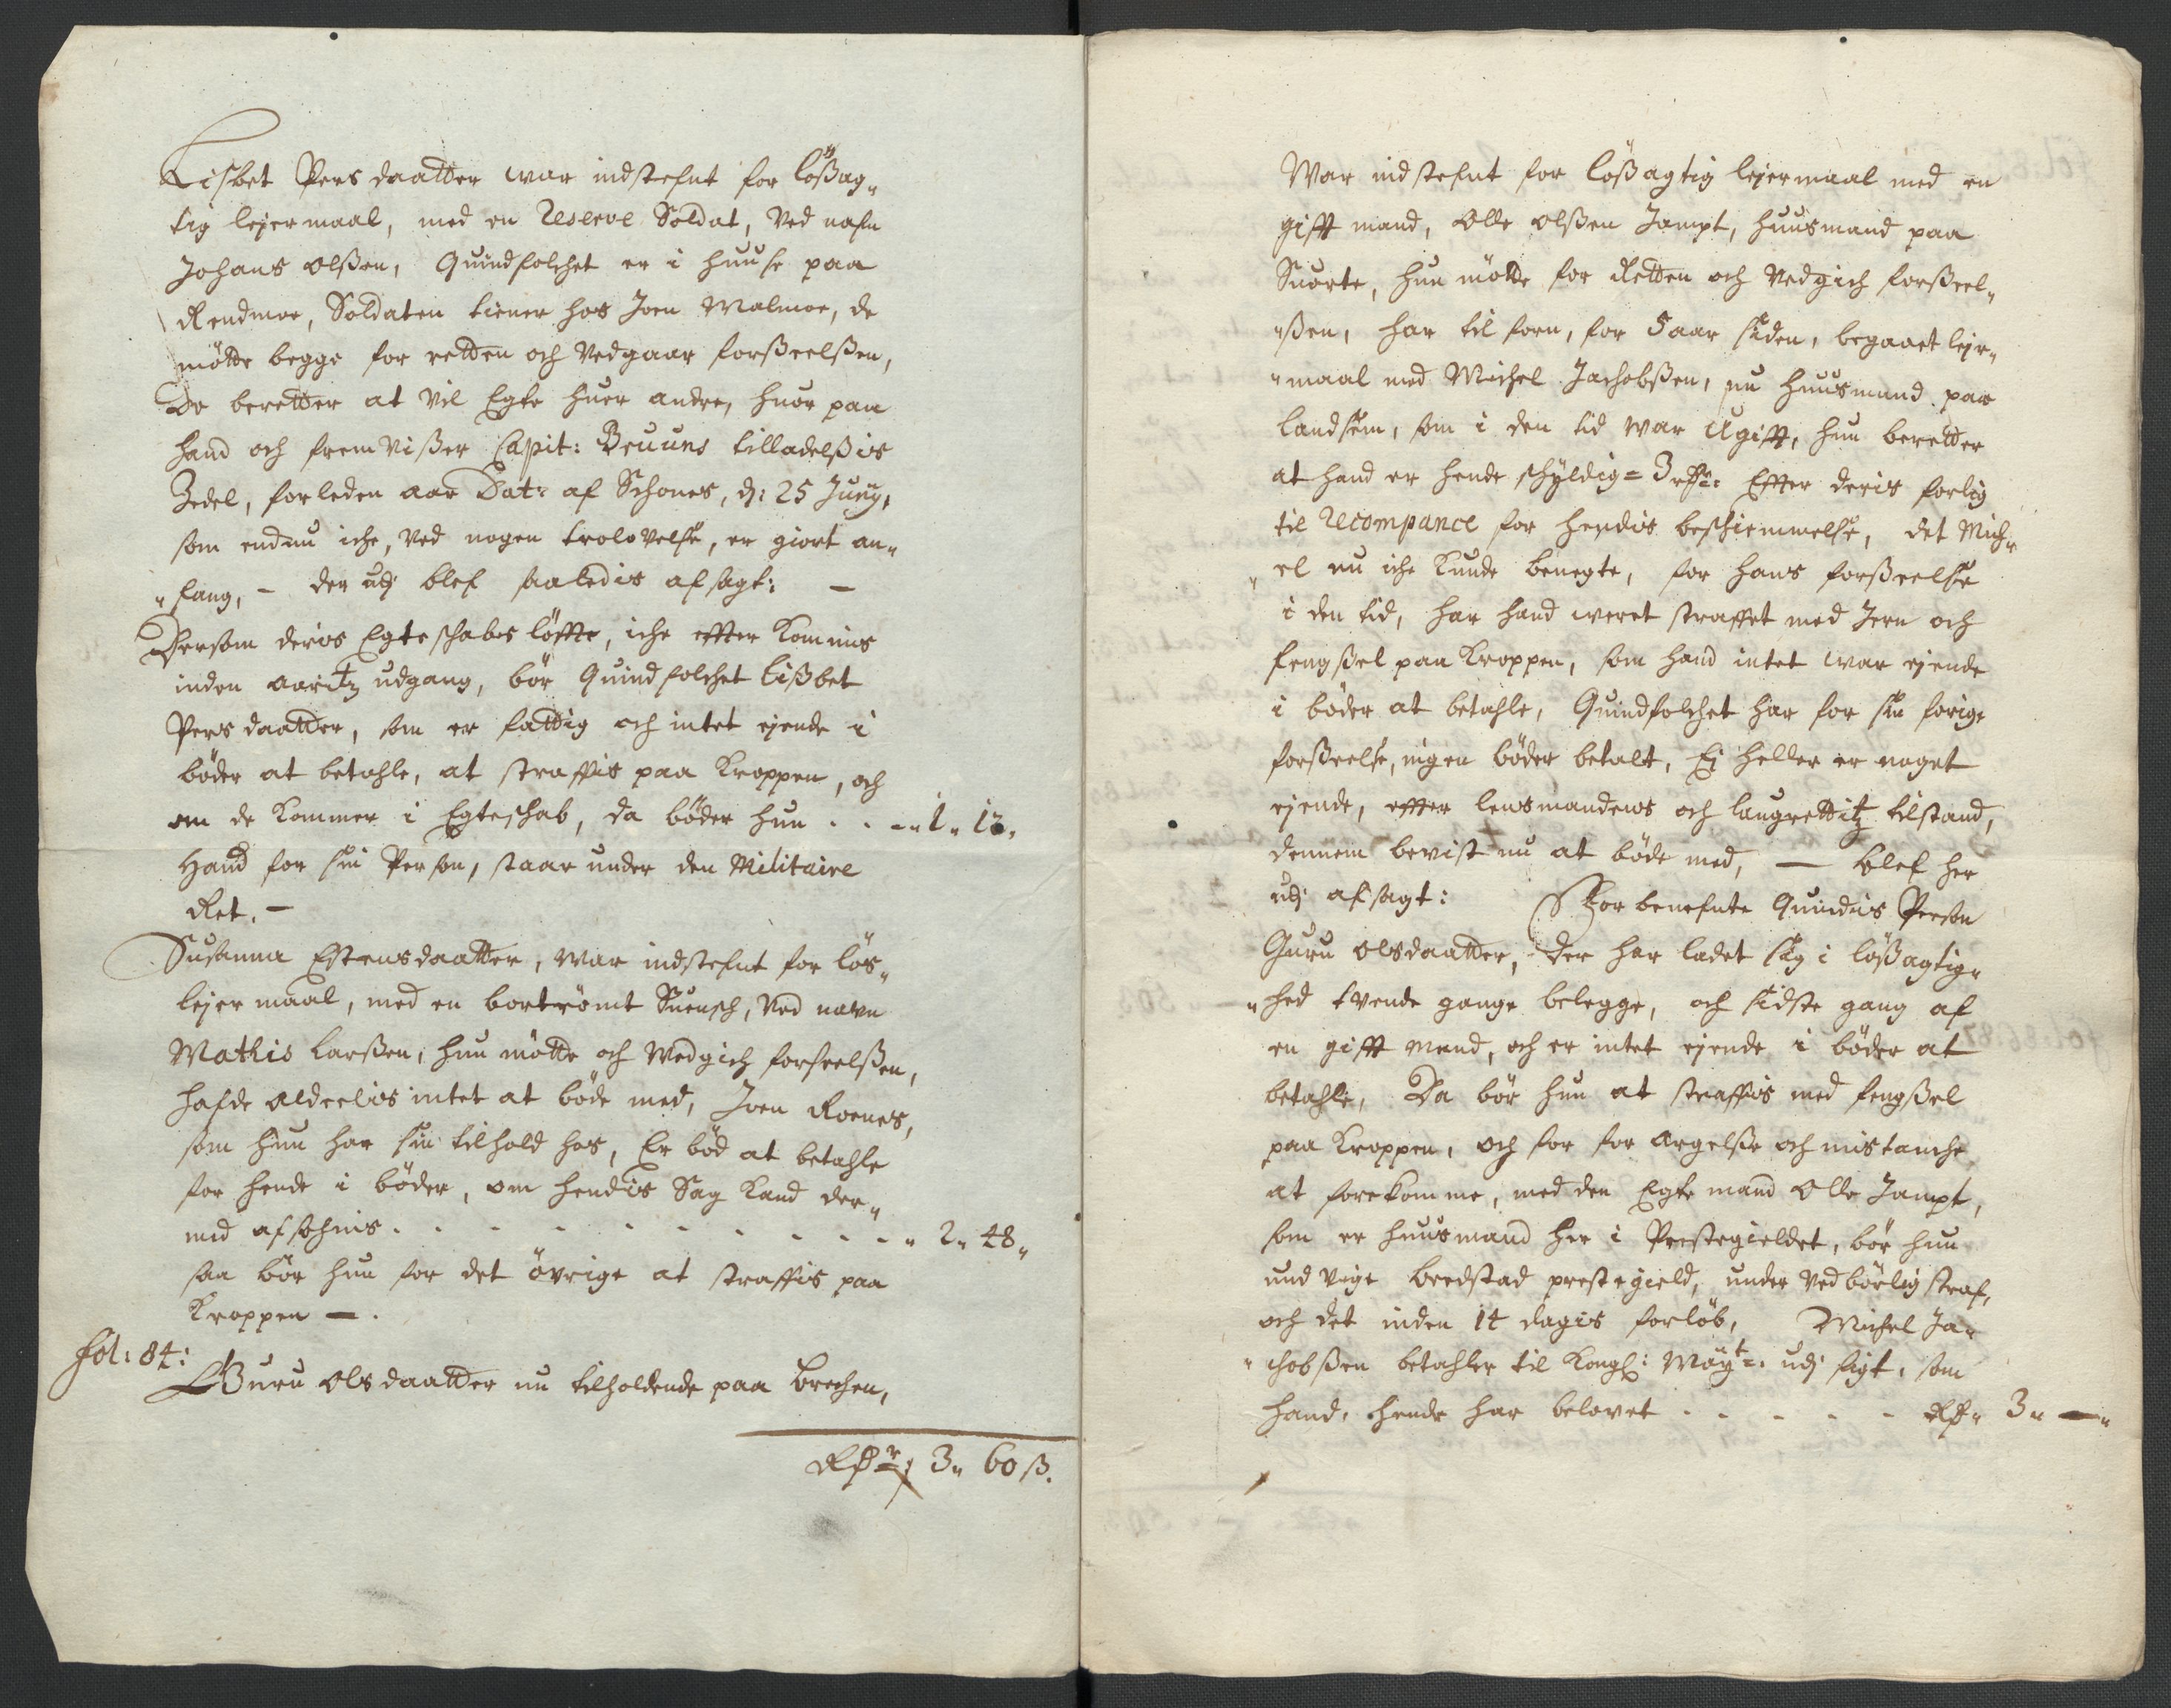 Lisbet Pers daatter war indstefnt for løßag„
tig lejermaal, med en Reserve Soldat, Ved nafn
Johans olßen, Quindfolchet er i huuse paa
Rendmoe, Soldaten tiener hos Joen Malmoe, de
møtte begge for retten och Vedgaar forßeelßen,
De beretter at vil Egte huer andre, huor paa
hand och fremvißer Capit: Bruuns tilladelßis
Zedel, forleden aar Dat: af Schones, d: 25 Junÿ,
som endnu iche, ved nogen trolovelse, er giort an„
„fang, – der udj blef saaledis afsagt: –
Dersom deris Egteschabs løffte, iche effter kommis
inden aaritz udgang, bør Quindfolchet Lißbet
Pers daatter, som er fattig och intet ejende i
bøder at betahle, at straffis paa kroppen, och
om de kommer i Egteschab, da bøder hun . . „ 1„ 12„
Hand for sin Person, staar under den Militaire
Ret. –
Susanna Estensdaatter, war indstefnt for løs„
lejermaal, med en bortrømt Suensch, Ved navn
Mathis Larßen, hun møtte och Wedgich forseelßen,
hafde alderlis intet at bøde med, Joen Roenes,
som hun har sin tilhold hos, Er bød at betahle
for hende i bøder, om hendis Sag kand der„
med afsohnis . . . . . . . . . „ 2„ 48„
saa bør hun for det øvrige at straffis paa
kroppen – .
fol: 84:
Guru olsdaatter nu tilholdende paa Brechen,
Rdr: 3„ 60 ß.
War indstefnt for løßagtig lejermaal med en
gifft mand, Olle olßen Jampt, huusmand paa
Suorte, hun møtte for Retten och vedgich forßeel„
„ßen, har til forn, for 5 aar siden, begaaet lejr„
„maal med Michel Jachobßen, nu huusmand paa
Landsem, som i den tid war Ugifft, hun beretter
at hand er hende schÿldig = 3 rdr: Effter deris forlig
til Recompance for hendis beschiemmelse, det Mich„
„el nu iche kunde benegte, for hans forßeelse
i den tid, har hand weret straffet med Jern och
fengßel paa kroppen, som hand intet war ejende
i bøder at betahle, Quindfolchet har for sin forige
forßeelse, ingen bøder betalt, Ej heller er noget
ejende, effter lensmandens och laugrettitz tilstand,
dennem bevist nu at bøde med, — blef her
udj afsagt: For benefnte Quindis Person
Guru olsdaatter, der har ladet sig i løßagtig„
„hed tvende gange belegge, och sidste gang af
en gifft mand, och er intet ejende i bøder at
betahle, Da bør hun at straffis med fengßel
paa kroppen, och for for argelße och mistanche
at forekomme, med den Egte mand Olle Jampt,
som er huusmand her i Prestegieldet, bør hun
und vige Bredstad prestegield, under ved børlig straf,
och det inden 14 dagis forløb, Michel Ja„
„chobßen betahler til Kongl: Maÿt: udj sigt, som
hand, hende har belovet . . . . . Rd„ 3„ —„